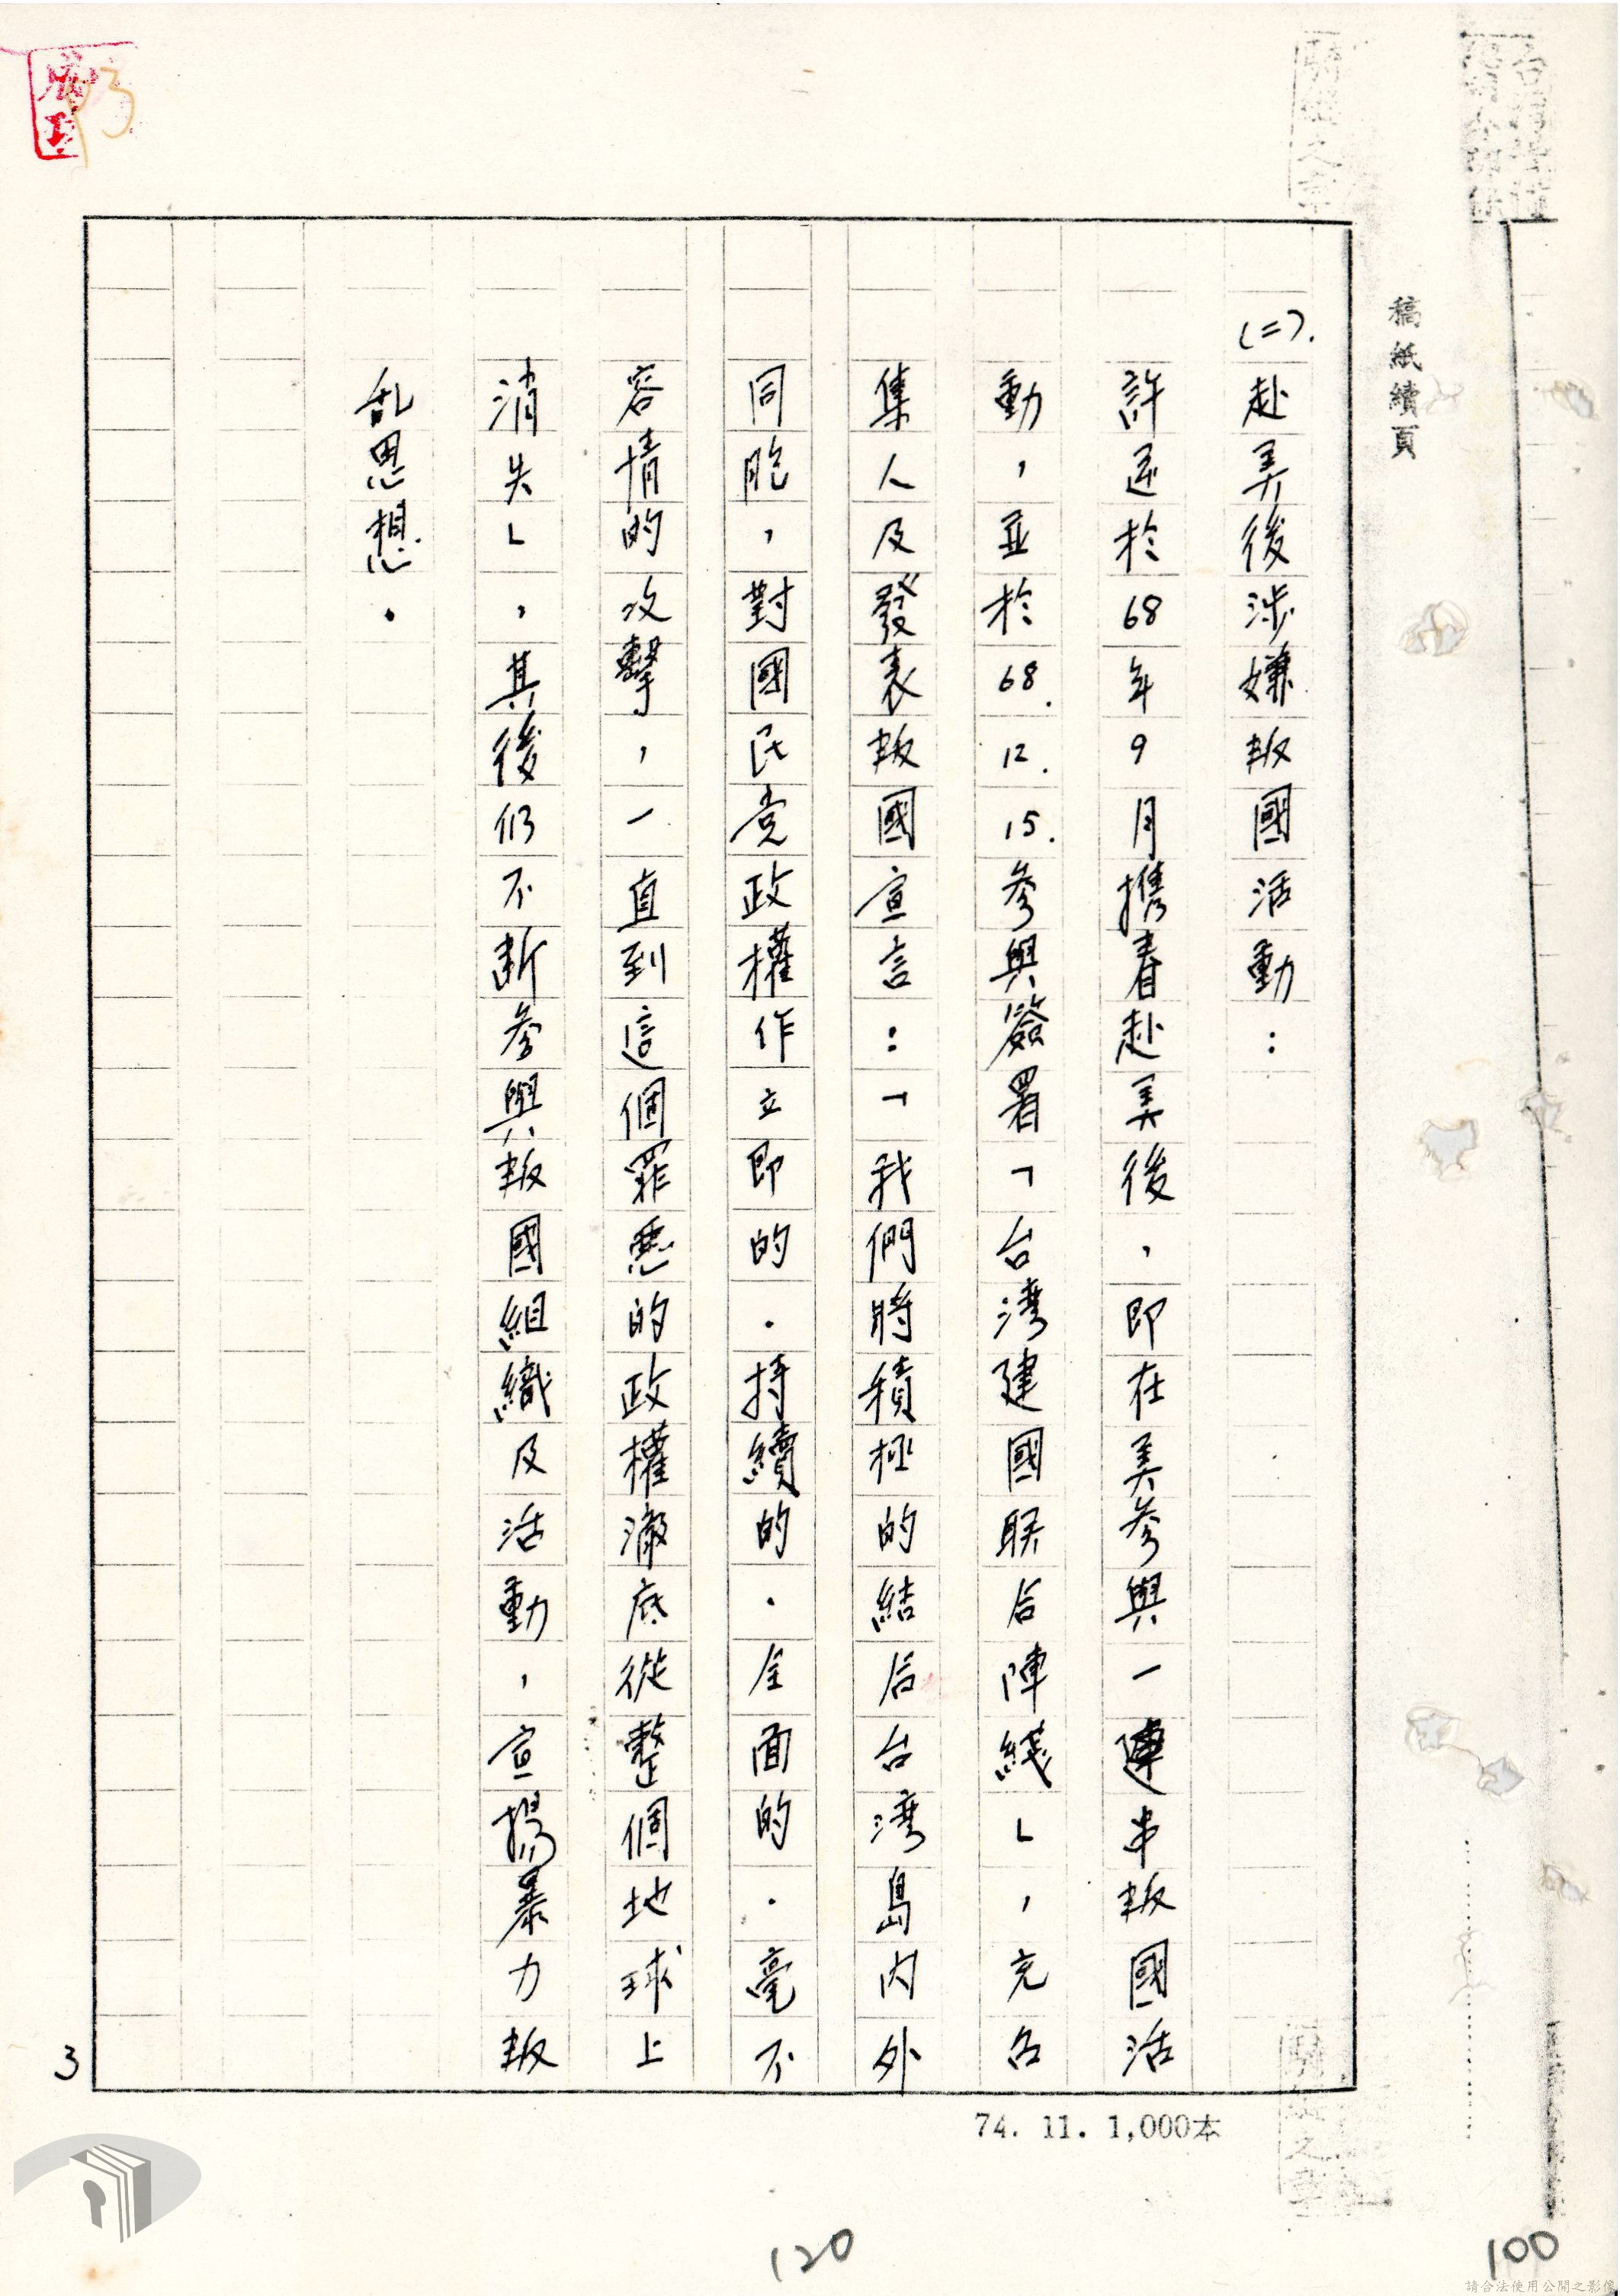 稿紙續頁
(二).赴美後涉嫌叛國活動：
許逆於68年9月携眷赴美後，即在美參與一連串叛國活
動，並於68.12.15.參與簽署「台湾建國联合陣綫」，充召
集人及發表叛國宣言：「我們將積極的結合台湾島內外
同胞，對國民党政權作立即的．持續的．全面的．毫不
容情的攻擊，一直到這個罪惡的政權澈底從整個地球上
消失」，其後仍不断參與叛國組織及活動，宣揚暴力叛
乱思想．
3
74. 11. 1,000本
120
100
請合法使用公開之影像